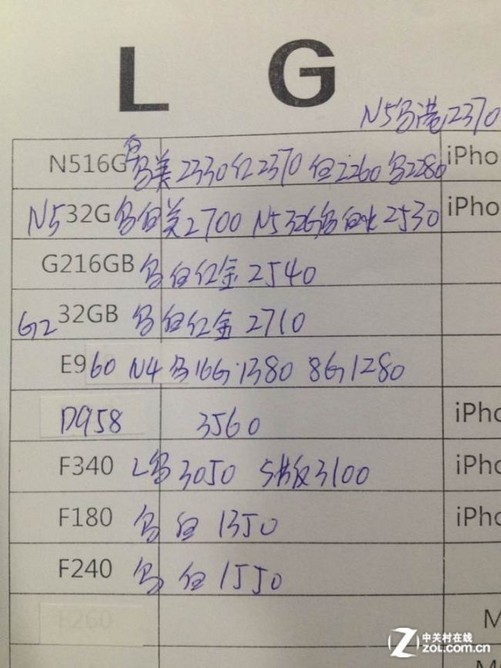 L G
N5乌港2370
N516G 乌美2330红2370白2260乌2280 iPho
N532G乌白美2700 N532G乌白 2530 iPho
G216GB 乌白红金2540
G232GB 乌白红金2710
E960 N4乌16G1380 8G1280
D958 3560 iPho
F340 L乌3050 S 3100 iPho
F180 乌白1350 iPho
F240 乌白1550
F260 M
M
Z 中关村在线
zol.com.cn